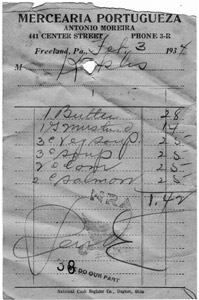 MERCEARIA PORTUGUEZA
ANTONIO MOREIRA
441 CENTER STREET PHONE 3-R
Freeland, Pa., Feb 3 1934
M
1 Butter 28
1 Mustard 14
3 c Veg soup 25
3 c soup 25
2 c 25
2 c Salmon 25
1.42
NRA
38
WE DO OUR PART
National Cash Register Co., Dayton, Ohio